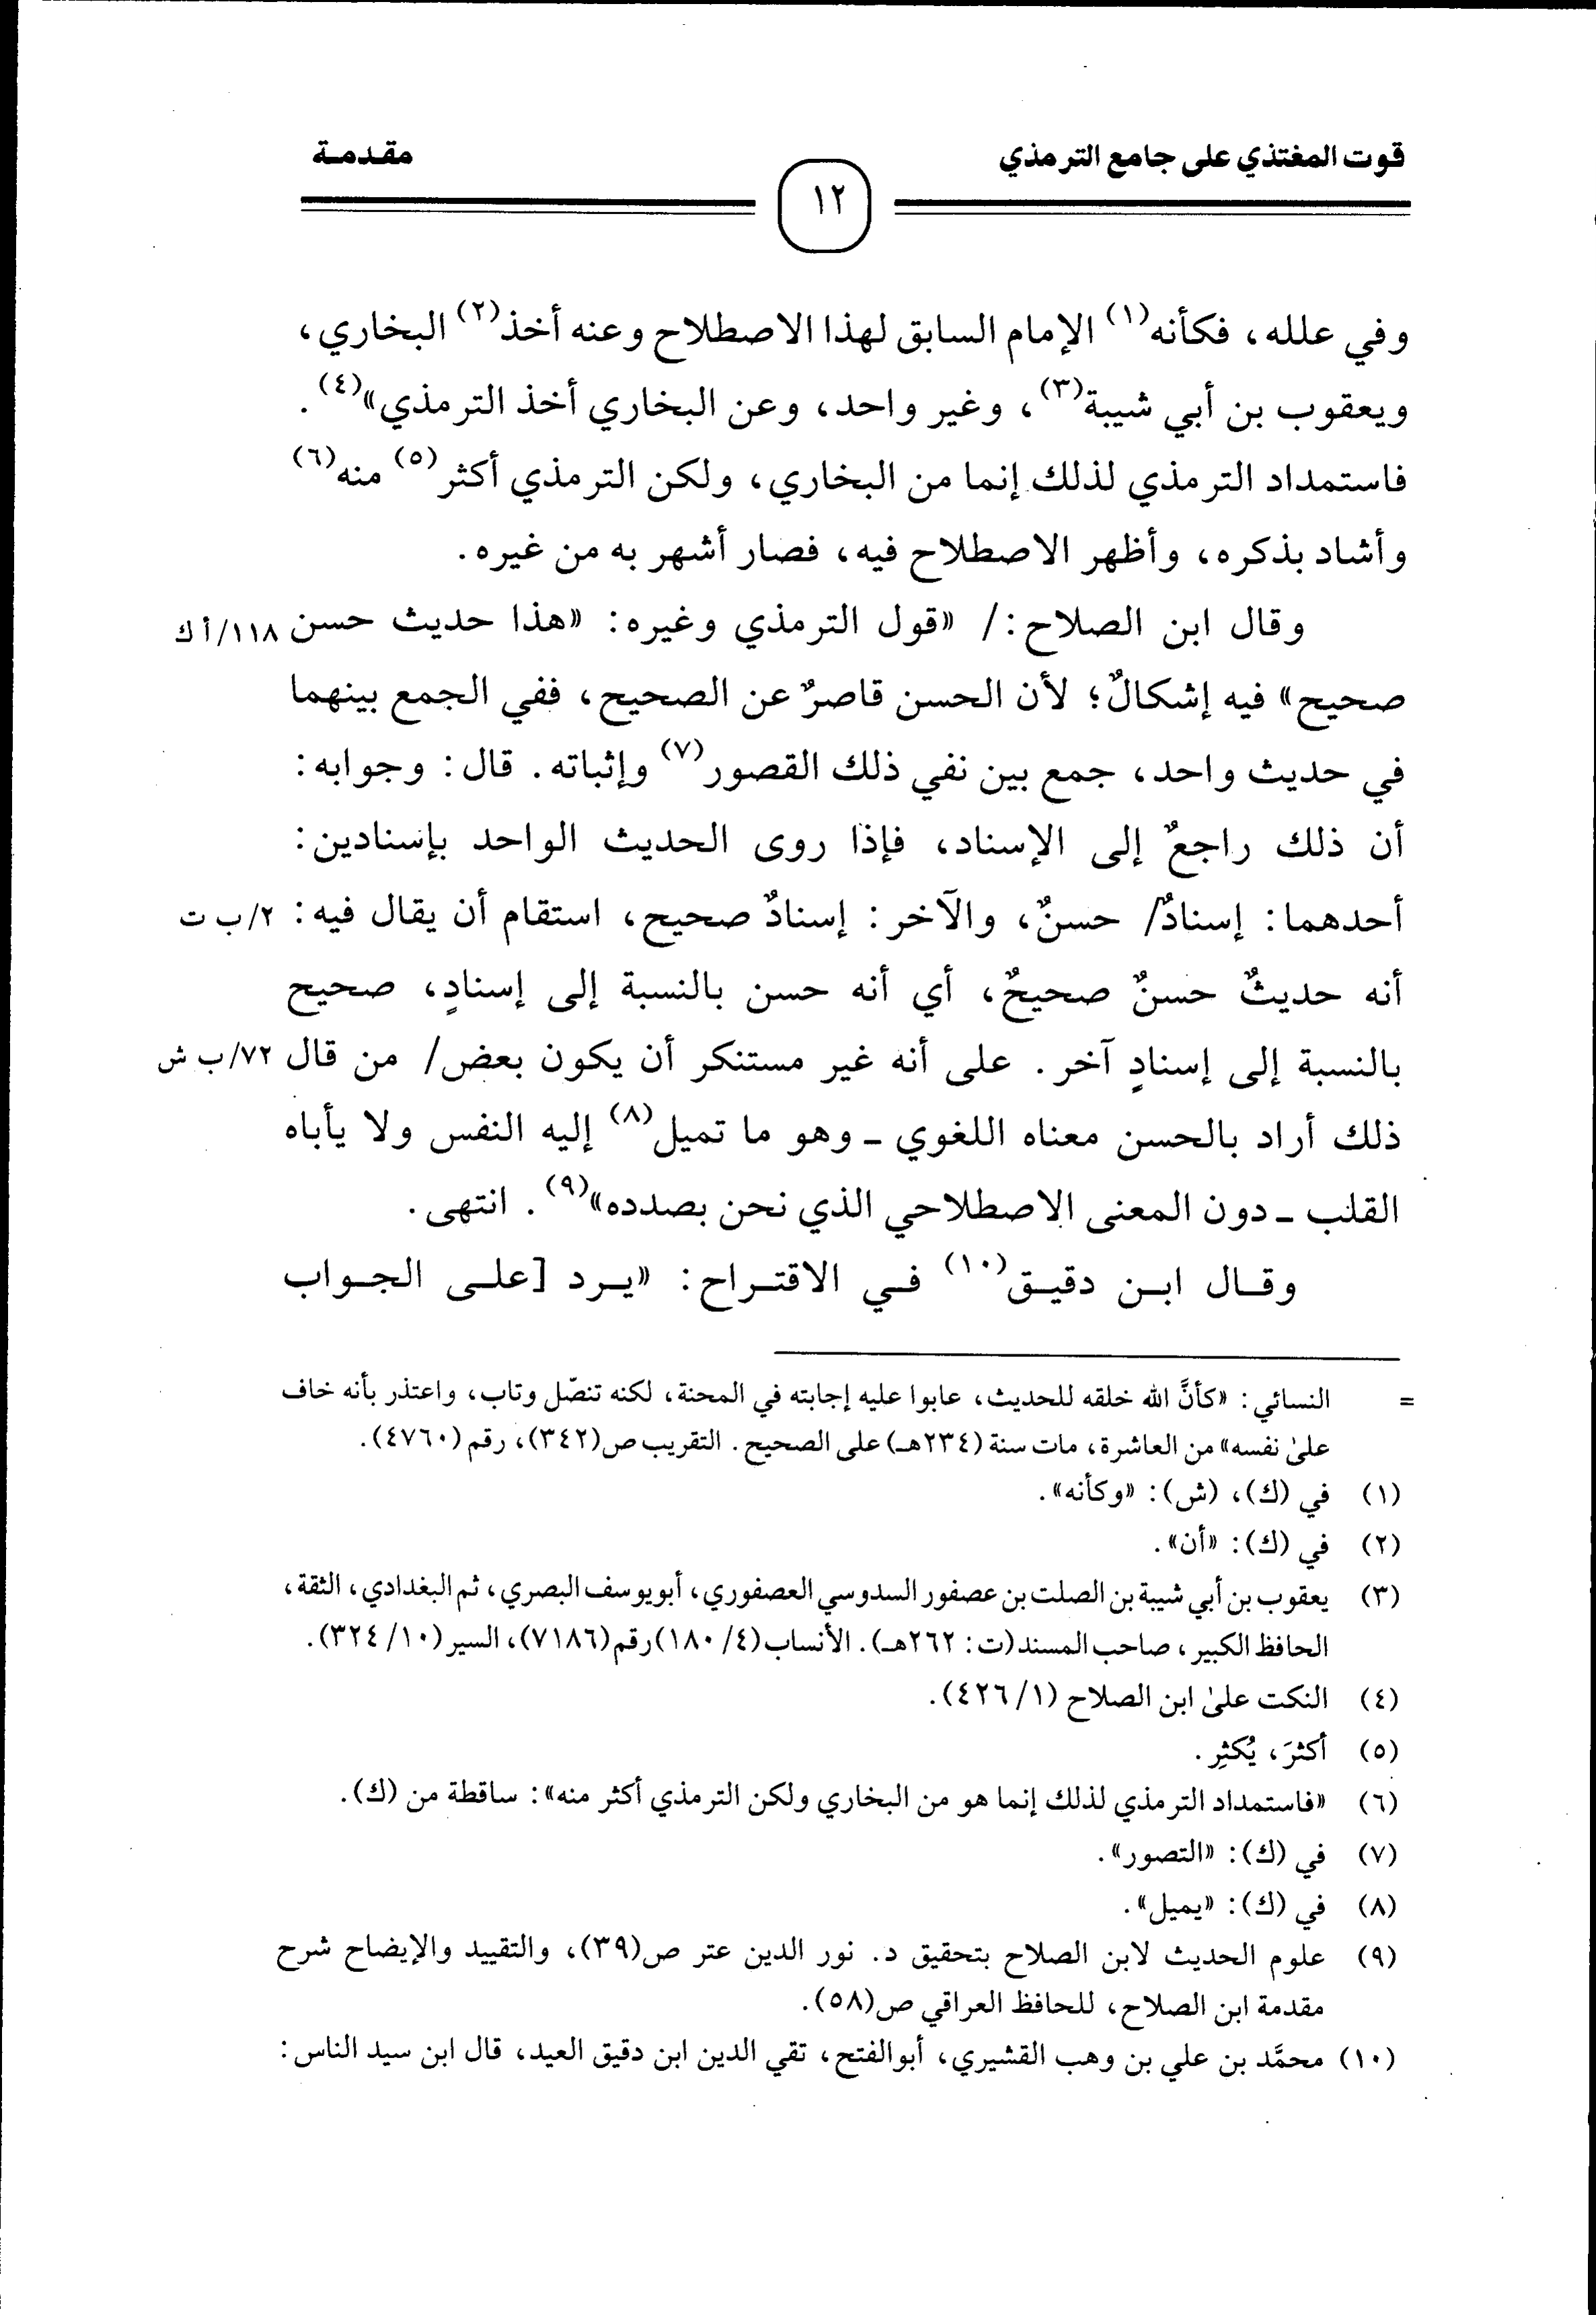 قوت المغتذي على جامع الترمذي
مقدمة
١٢
وفي علله، فكأنه(١) الإمام السابق لهذا الاصطلاح وعنه أخذ(٢) البخاري،
ويعقوب بن أبي شيبة(٣)، وغير واحد، وعن البخاري أخذ الترمذي»(٤).
فاستمداد الترمذي لذلك إنما من البخاري، ولكن الترمذي أكثر(٥) منه(٦)
وأشاد بذكره، وأظهر الاصطلاح فيه، فصار أشهر به من غيره.
وقال ابن الصلاح:/ «قول الترمذي وغيره: «هذا حديث حسن ١١٨/أ ك
صحيح» فيه إشكالٌ؛ لأن الحسن قاصرٌ عن الصحيح، ففي الجمع بينهما
في حديث واحد، جمع بين نفي ذلك القصور(٧) وإثباته. قال: وجوابه:
أن ذلك راجعٌ إلى الإسناد، فإذا روى الحديث الواحد بإسنادين:
أحدهما: إسنادٌ/ حسنٌ، والآخر: إسنادٌ صحيح، استقام أن يقال فيه: ٢/ب ت
أنه حديثٌ حسنٌ صحيحٌ، أي أنه حسن بالنسبة إلى إسنادٍ، صحيح
بالنسبة إلى إسنادٍ آخر. على أنه غير مستنكر أن يكون بعض/ من قال ٧٢/ب ش
ذلك أراد بالحسن معناه اللغوي ـ وهو ما تميل(٨) إليه النفس ولا يأباه
القلب ـ دون المعنى الاصطلاحي الذي نحن بصدده»(٩). انتهى.
وقـال ابـن دقيـق(١٠) فـي الاقتـراح: «يـرد [علـى الجـواب
= النسائي: «كأنَّ الله خلقه للحديث، عابوا عليه إجابته في المحنة، لكنه تنصّل وتاب، واعتذر بأنه خاف
علىٰ نفسه» من العاشرة، مات سنة (٢٣٤هـ) على الصحيح. التقريب ص(٣٤٢)، رقم (٤٧٦٠).
(١) في (ك)، (ش): «وكأنه».
(٢) في (ك): «أن».
(٣) يعقوب بن أبي شيبة بن الصلت بن عصفور السدوسي العصفوري، أبويوسف البصري، ثم البغدادي، الثقة،
الحافظ الكبير، صاحب المسند (ت: ٢٦٢هـ). الأنساب (٤/ ١٨٠) رقم (٧١٨٦)، السير (١٠/ ٣٢٤).
(٤) النكت علىٰ ابن الصلاح (١/ ٤٢٦).
(٥) أكثرَ، يُكثِر.
(٦) «فاستمداد الترمذي لذلك إنما هو من البخاري ولكن الترمذي أكثر منه»: ساقطة من (ك).
(٧) في (ك): «التصور».
(٨) في (ك): «يميل».
(٩) علوم الحديث لابن الصلاح بتحقيق د. نور الدين عتر ص(٣٩)، والتقييد والإيضاح شرح
مقدمة ابن الصلاح، للحافظ العراقي ص(٥٨).
(١٠) محمَّد بن علي بن وهب القشيري، أبوالفتح، تقي الدين ابن دقيق العيد، قال ابن سيد الناس: